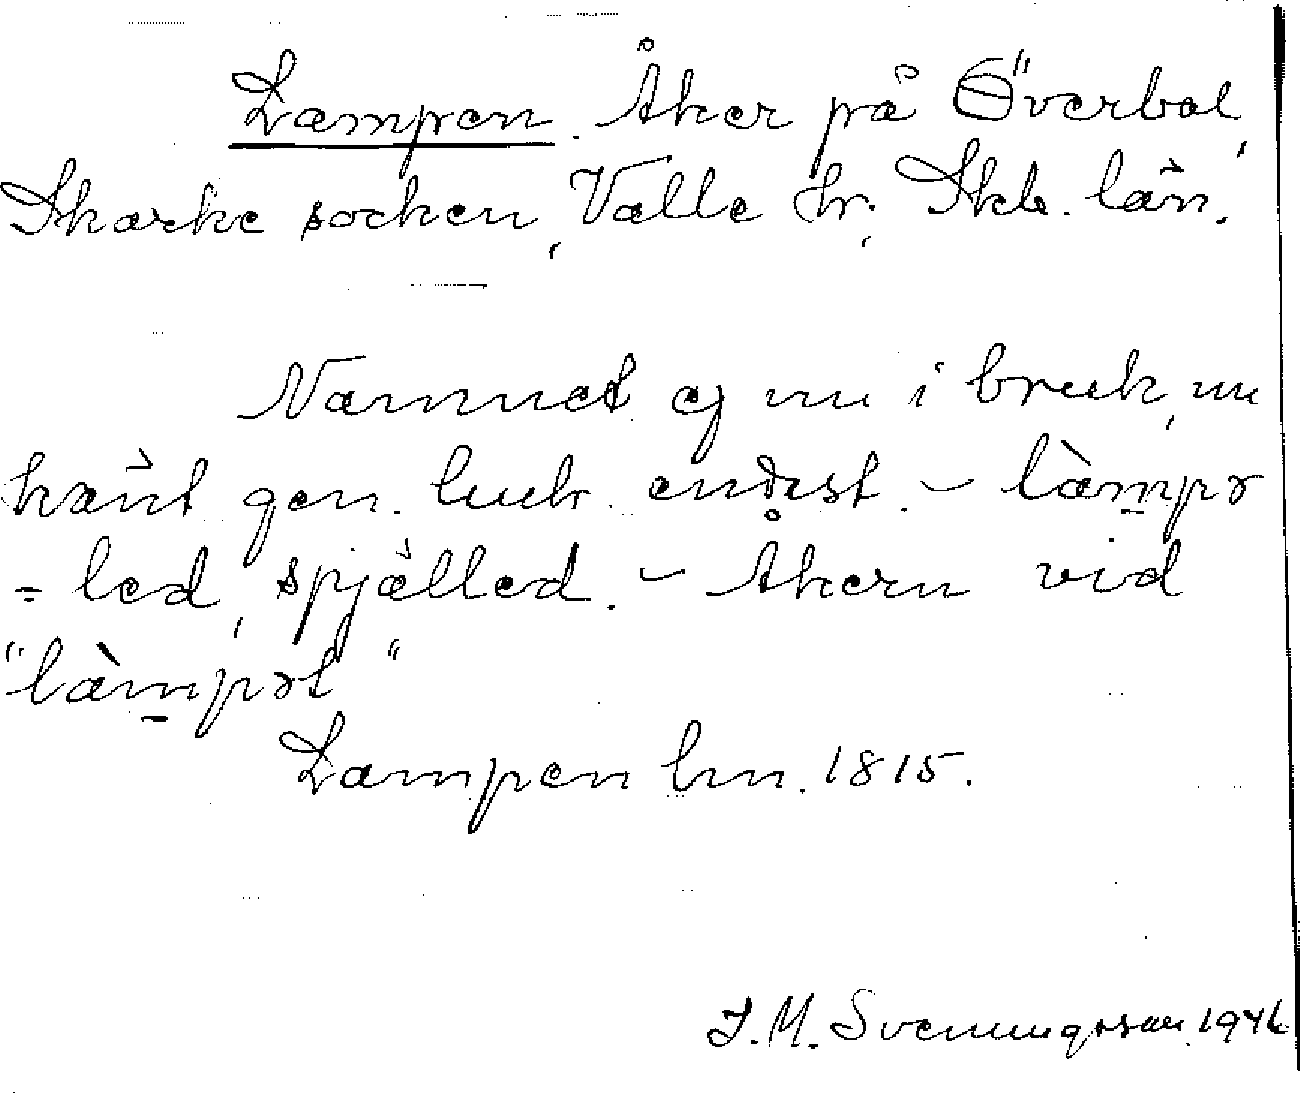 Lampen. Åker på Överbol,
Skarke socken, Valle hr, Skb. län.
Namnet ej nu i bruk, nu
känt gen. luk. endast. – làmpər
= led, spjälled. – Åkern vid
"làmpət"
Lampen hm. 1815.
J. M. Svenungsson 1946